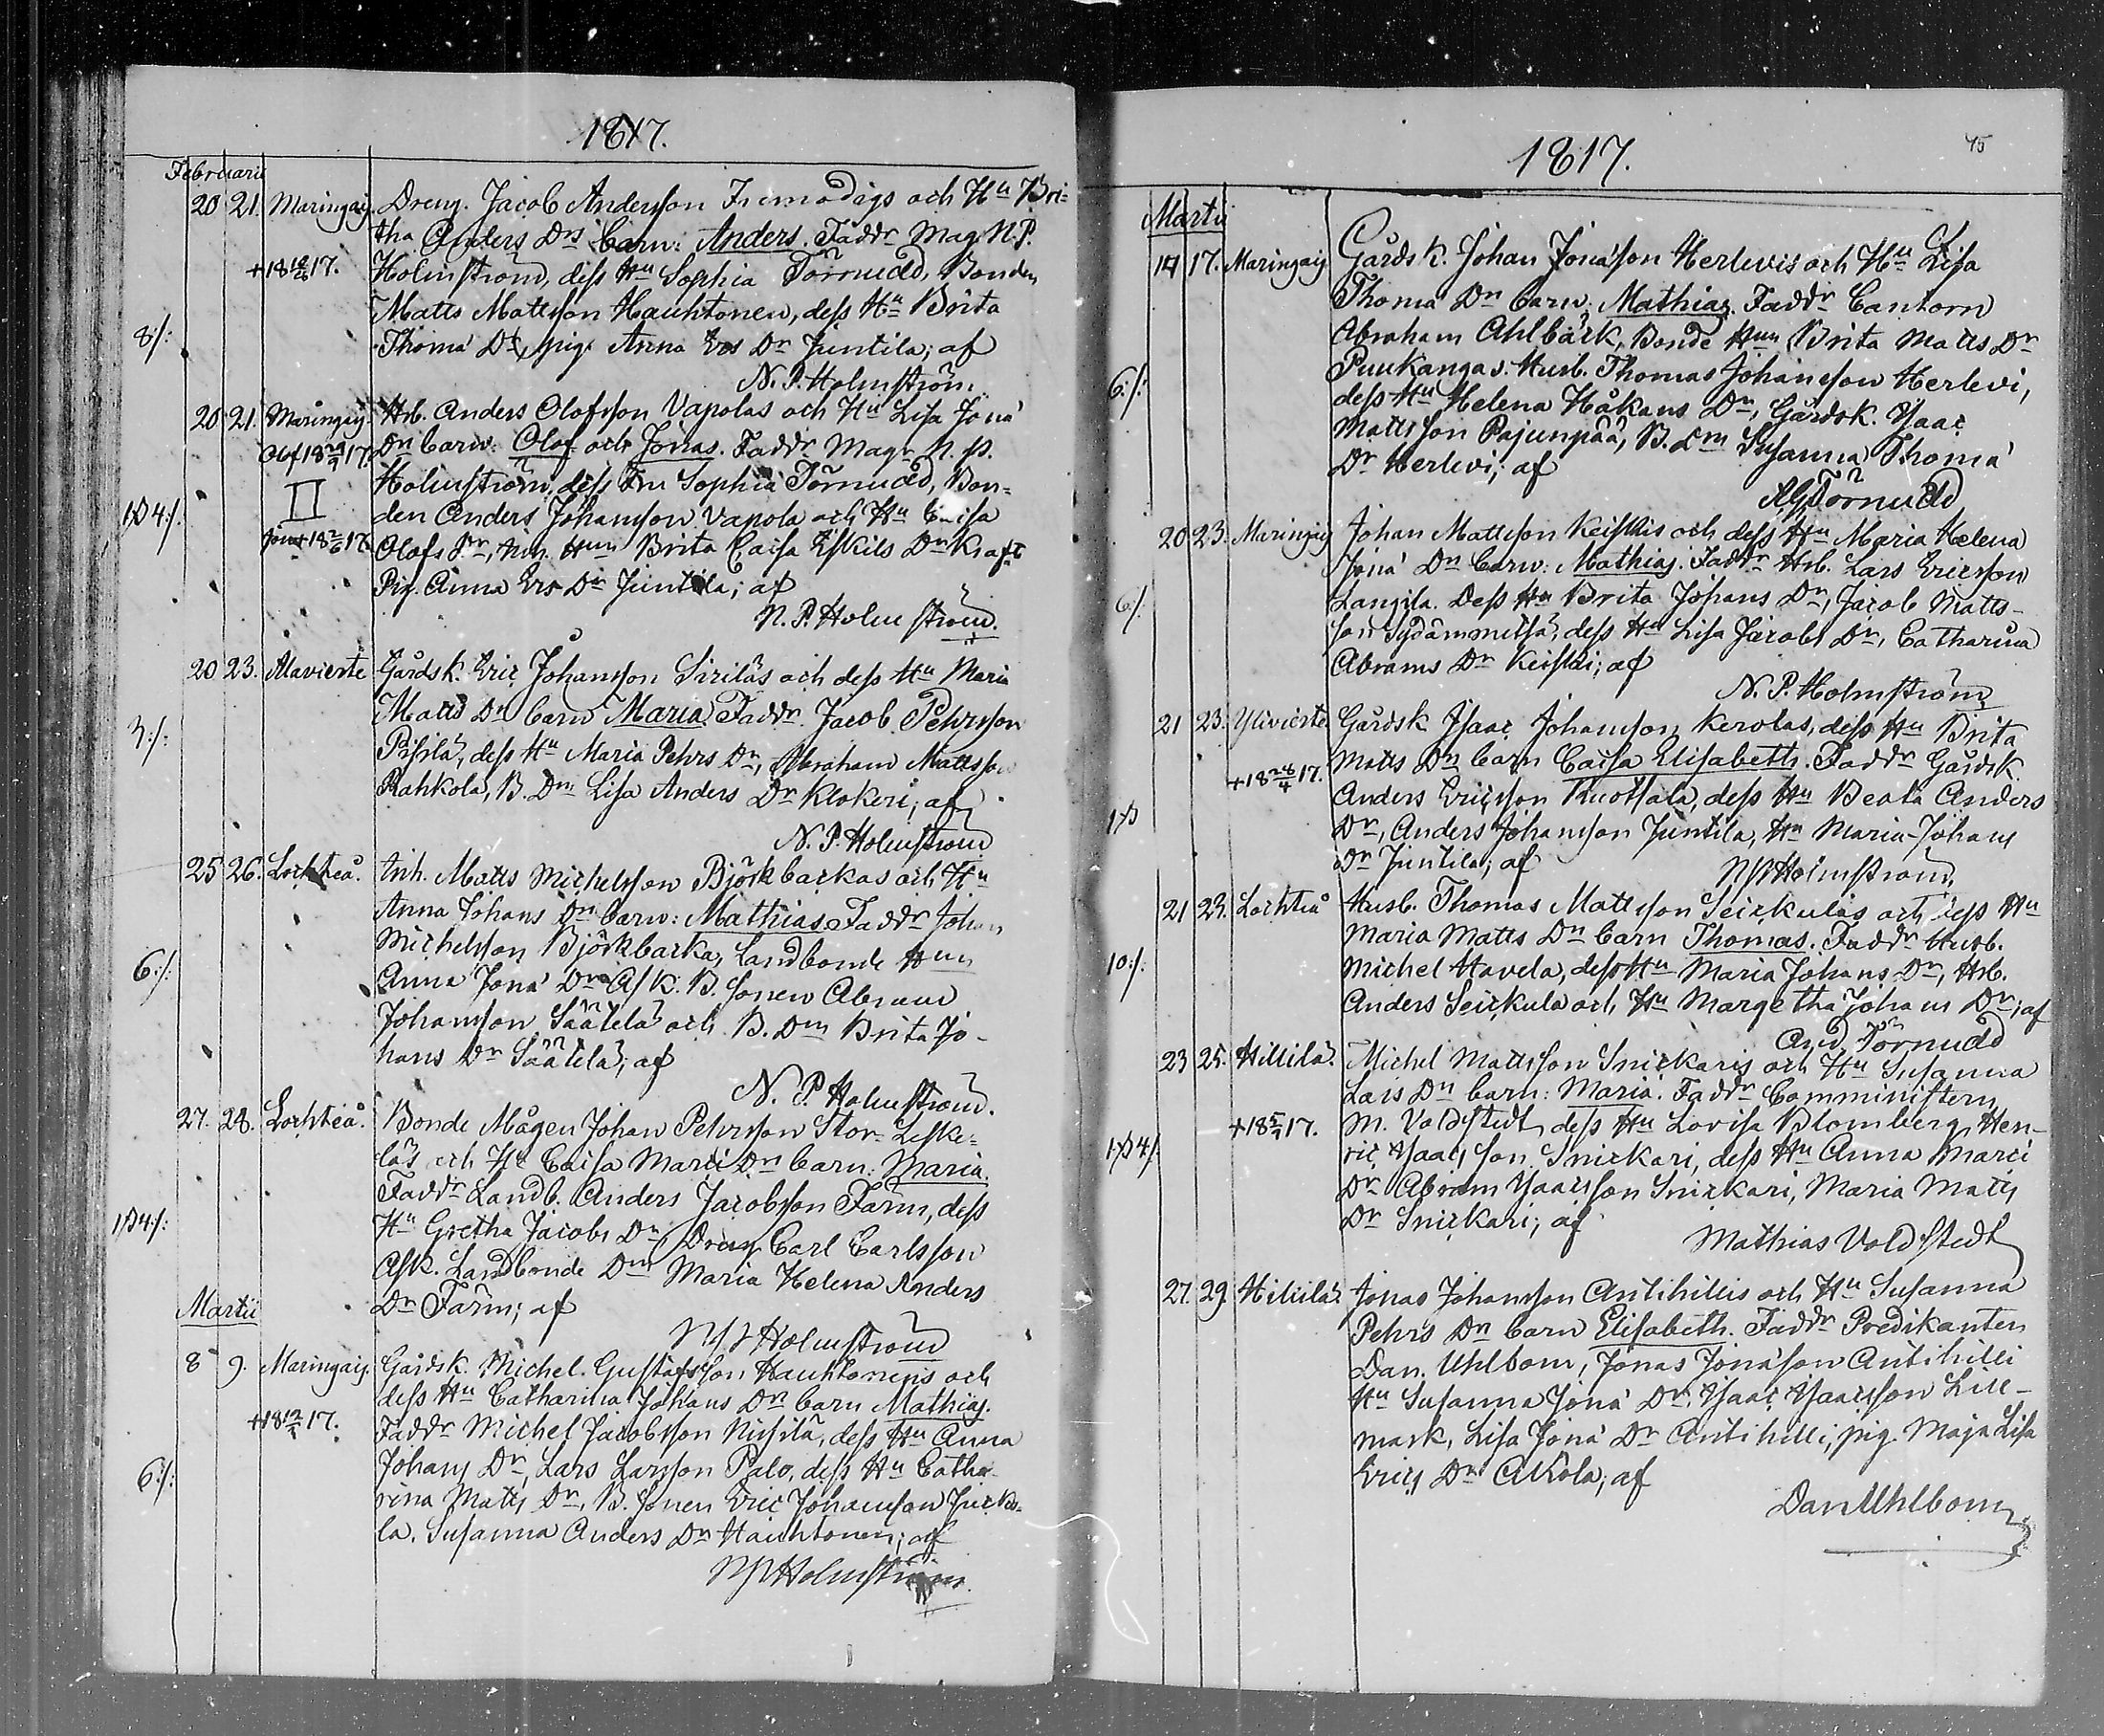 1817.
Februarii
20 21. Maringaiß. Dreng. Jacob Andersson Frimodigs och Hu Bri-
tha Anders Drs barn: Anders. Faddr Mag. N. P.
+18 17. Holmström, dess Hu Sophia Törnudd, Bonden
Matts Mattsson Hauhtonen, dess Hu Brita
8/: Thomä Dr, pig. Anna Ers Dr Juntila; af
N. P. Holmström.
20 21. Maringaiß. Hsb. Anders Olofsson Vapolas och Hu Lisa Jonä
Olof 18 17. Dn barn: Olof och Jonas. Faddr Magr N. P.
II Holmström, dess Fru Sophia Törnudd, Bon-
1 4:/. den Anders Johansson Vapola och Hu Caisa
Jon +18 2/6 17. Olofs Dr, Inh. Hun Brita Caisa Eskils Dr Kraft
Pig. Anna Ers Dr Juntila; af
N. P. Holmström.
20 23. Alavierte Gårdsk. Eric Johansson Siriläs och dess Hu Maria
Matts Dn barn Maria. Faddr Jacob Pehrsson
3:/: Pisilä, dess Hu Maria Pehrs Dr, Abraham Mattsson
Rahkola, B. Drn Lisa Anders Dr Klokeri; af
N. P. Holmström
25 26. Lochteå. Inh. Matts Michelsson Björkbackas och Hu
Anna Johans Dn barn: Mathias. Faddr Johan
Michelsson Björkbacka, Landbonde Hun
6:/: Anna Jonä Dr Ask. B. Sonen Abram
Johansson Säätelä och B. Drn Brita Jo-
hans Dr Säätelä; af
N. P. Holmström.
27. 28. Lochteå. Bonde Mågen Johan Pehrsson Stor-Leske-
läs och Hu Caisa Marci Dn barn: Maria.
Faddr Landb. Anders Jacobsson Färm, dess
1 4:/: Hu Gretha Jacobs Dr, Dreng Carl Carlsson
Ask. Landbonde Drn Maria Helena Anders
Martii Dr Färm; af
N P Holmström
8 9. Maringaiß. Gårdsk. Michel Gustafsson Hauhtonens och
dess Hu Catharina Johans Dn barn Mathias.
+18 17. Faddr Michel Jacobsson Nisilä, dess Hu Anna
Johans Dr, Lars Larsson Palo, dess Hu Catha-
6:/: rina Matts Dr, B. Sonen Eric Johansson Jucko-
la. Susanna Anders Dr Hauhtonen; af
N P Holmström
1817.
45
Martii
14 17. Maringaiß Gårdsk. Johan Jonäson Herlevis och Hu Lisa
Thomä Dn barn: Mathias. Faddr Cantorn
Abraham Ahlbäck, Bonde Hun Brita Matts Dr
6:/: Puukangas: Husb. Thomas Johansson Herlevi,
dess Hu Helena Håkans Dr, Gårdsk. Isaac
Mattsson Pajunpää, B. Drn Susanna Thomä
Dr Herlevi; af
Törnudd
20 23. Maringaiß Johan Mattsson Keiskis och dess Hu Maria Helena
Jonä Dn barn: Mathias. Faddr Hsb. Lars Ericsson
6/. Langila. Dess Hu Brita Johans Dr, Jacob Matts-
son Sydämmetsä, dess Hu Lisa Jacobs Dr, Catharina
Abrams Dr Keiski; af
N. P. Holmström
21 23. Ylivierte Gårdsk Isaac Johansson Kerolas, dess Hu Brita
+18 28/4 17. Matts Dn barn Caisa Elisabeth. Faddr Gårdsk.
Anders Ericsson Ruotsala, dess Hu Beata Anders
1 Dr, Anders Johansson Juntila, Hu Maria Johans
Dr Juntila; af
N P Holmström
21 23. Lochteå Husb. Thomas Mattsson Seickulas och dess Hu
Maria Matts Dn barn Thomas. Faddr Husb.
10:/: Michel Havela, dess Hu Maria Johans Dr, Hsb.
Anders Seickula och Hu Margetha Johans Dr; af
And. Törnudd
23 25. Hillilä. Michel Mattsson Snickaris och Hu Susanna
Lars Dn barn: Maria. Faddr Comministern
+18 17. M. Voldstedt, dess Hu Lovisa Blomberg, Hen-
1 4/. ric Isaacsson Snickari, dess Hu Anna Marci
Dr Abram Isaacsson Snickari, Maria Matts
Dr Snickari; af
Mathias Voldstedt
27. 29. Hillilä. Jonas Johansson Antihillis och Hu Susanna
Pehrs Dn barn Elisabeth. Faddr Predikanten
Dan. Uhlbom, Jonas Jonäson Antihilli
Hu Susanna Jonä Dr. Isaac Isaacsson Lill-
mark, Lisa Jonä Dr Antihilli, pig. Maja Lisa
Erics Dr Akola; af
Dan Uhlbom